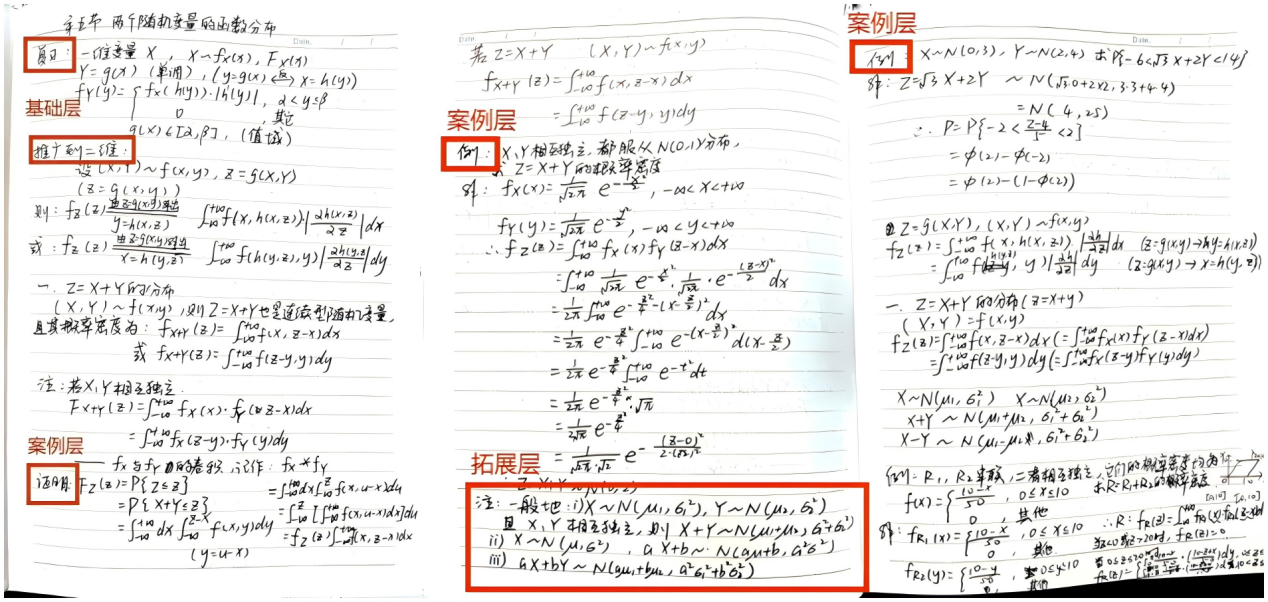 第五节 两个随机变量的函数分布
复习: 一维变量 X, X~fx(x), Fx(x)
Y=g(x) (单调), (y=g(x) 反→ x=h(y))
fY(y)={fx(h(y))·|h'(y)|, α<y≤β
0, 其它
基础层
g(x)∈[α,β], (值域)
推广到二维:
设(X,Y)~f(x,y), z=g(X,Y)
(z=g(x,y))
则: fz(z) 由z=g(x,y)解出 y=h(x,z) ∫-∞+∞ f(x,h(x,z))·|∂h(x,z)/∂z|dx
或: fz(z) 由z=g(x,y)解出 x=h(y,z) ∫-∞+∞ f(h(y,z),y)|∂h(y,z)/∂z|dy
一. Z=X+Y的分布
(X,Y)~f(x,y), 则Z=X+Y也是连续型随机变量,
且其概率密度为: fx+y(z)=∫-∞+∞ f(x,z-x)dx
或 fx+y(z)=∫-∞+∞ f(z-y,y)dy
注: 若X,Y相互独立.
Fx+y(z)=∫-∞+∞ fx(x)·fY(z-x)dx
=∫-∞+∞ fx(z-y)·fY(y)dy
案例层
fx与fY的卷积, 记作: fx*fY
证明: Fz(z)=P{Z≤z}
=P{X+Y≤z}
=∫-∞+∞ dx∫-∞z-x f(x,y)dy
(y=u-x)
=∫-∞+∞dx∫-∞z f(x,u-x)du
=∫-∞z[∫-∞+∞f(x,u-x)dx]du
=fz(z)∫-∞+∞f(x,z-x)dx
若Z=X+Y (X,Y)~f(x,y)
fx+y(z)=∫-∞+∞ f(x,z-x)dx
=∫-∞+∞ f(z-y,y)dy
案例层
例: X,Y相互独立.都服从N(0,1)分布,
求 Z=X+Y的概率密度
解: fx(x)=1/√2π e^-x²/2, -∞<x<+∞
fY(y)=1/√2π e^-y²/2, -∞<y<+∞
∴ fz(z)=∫-∞+∞ fx(x)fY(z-x)dx
=∫-∞+∞ 1/√2π e^-x²/2·1/√2π·e^-(z-x)²/2 dx
=1/2π∫-∞+∞ e^-z²/4-(x-z/2)² dx
=1/2π e^-z²/4∫-∞+∞ e^-(x-z/2)² d(x-z/2)
=1/2π e^-z²/4∫-∞+∞ e^-t² dt
=1/2π e^-z²/4·√π
=1/2√π e^-z²/4
=1/√2π·√2 e^-(z-0)²/2·(√2)²
拓展层
∴ Z=X+Y~N(0,2)
注: 一般地: i) X~N(μ1,σ1²), Y~N(μ2,σ2²)
且X,Y相互独立,则X+Y~N(μ1+μ2,σ1²+σ2²)
ii) X~N(μ,σ²), aX+b~N(aμ+b,a²σ²)
iii) aX+bY~N(aμ1+bμ2,a²σ1²+b²σ2²)
案例层
例: X~N(0,3), Y~N(2,4) 求P{-6<√3X+2Y<14}
解: Z=√3X+2Y ~N(√3·0+2×2,3·3+4·4)
=N(4,25)
∴ P=P{-2<Z-4/5<2}
=Φ(2)-Φ(-2)
=Φ(2)-(1-Φ(2))
Z=g(X,Y),(X,Y)~f(x,y)
fz(z)=∫-∞+∞ f(x,h(x,z))|∂h/∂z|dx (z=g(x,y)→y=h(x,z))
=∫-∞+∞ f(h(y,z),y)|∂h/∂z|dy (z=g(x,y)→x=h(y,z))
一. Z=X+Y的分布(z=x+y)
(X,Y)=f(x,y)
fz(z)=∫-∞+∞f(x,z-x)dx(=∫-∞+∞fx(x)fY(z-x)dx)
=∫-∞+∞f(z-y,y)dy(=∫-∞+∞fx(z-y)fY(y)dy)
X~N(μ1,σ1²) X~N(μ2,σ2²)
X+Y~N(μ1+μ2,σ1²+σ2²)
X-Y~N(μ1-μ2,σ1²+σ2²)
例: R1,R2串联,二者相互独立,它们的概率密度均为
f(x)={10-x/50, 0≤x≤10
0, 其他
求R=R1+R2的概率密度
解: fR1(x)={10-x/50, 0≤x≤10
0, 其他
fR2(y)={10-y/50, 0≤y≤10
0, 其他
∴ R: fR(z)=
当z<0或z>20时, fR(z)=0.